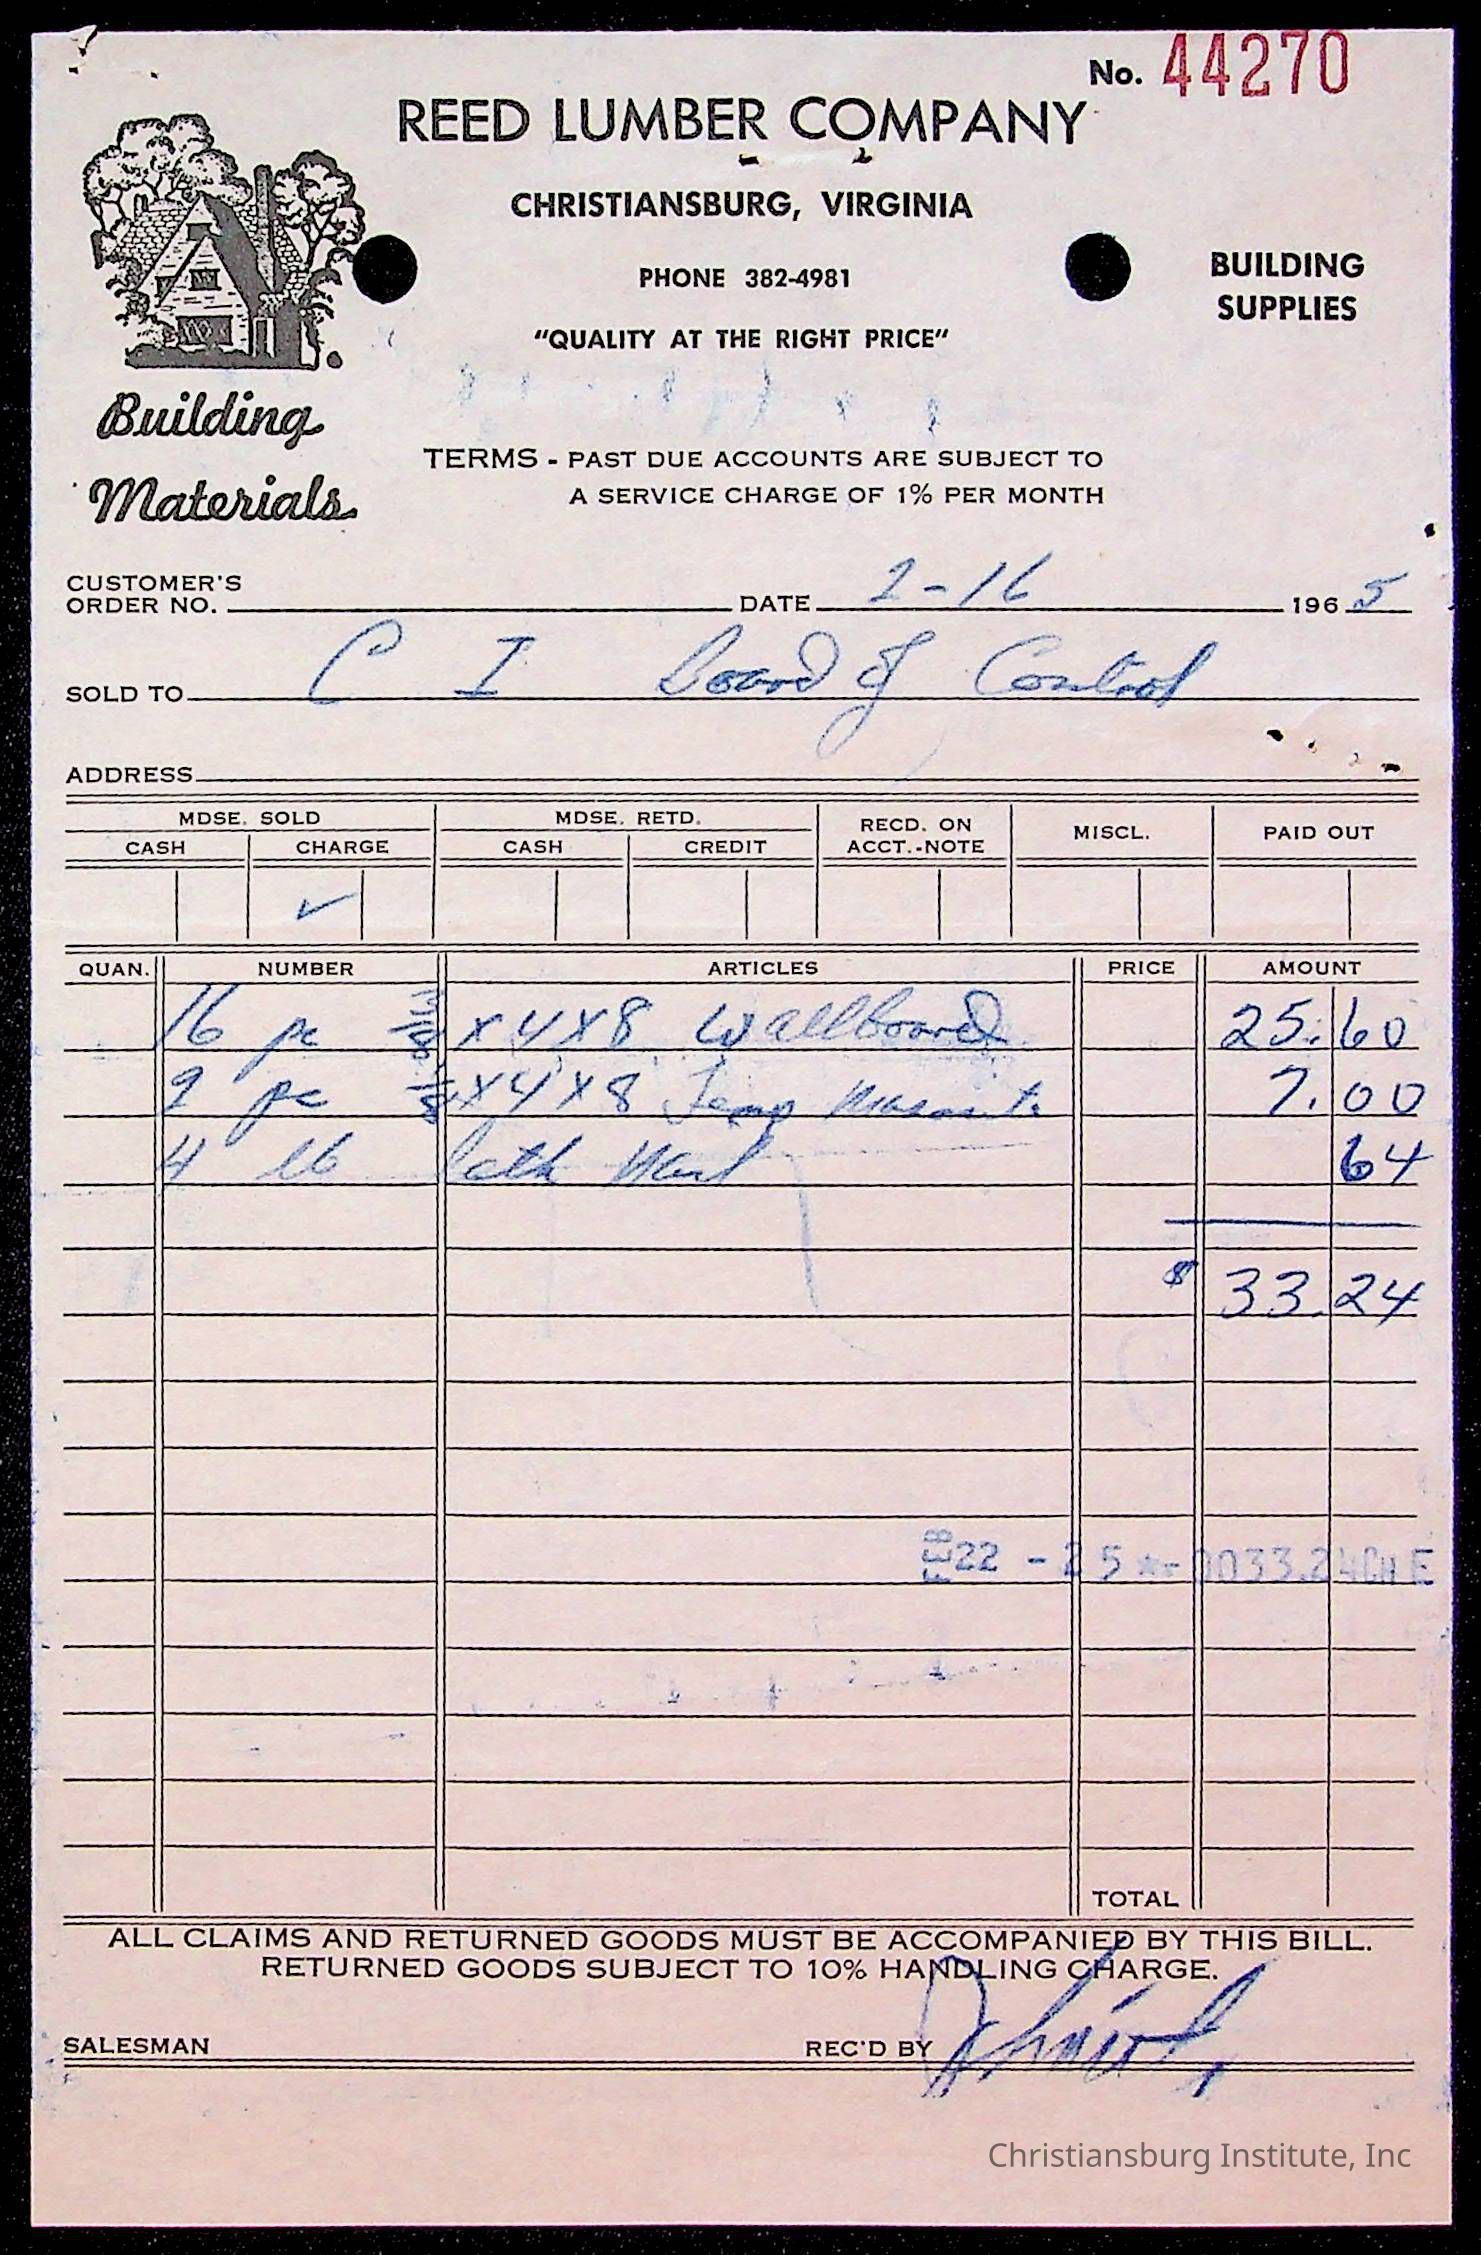 No. 44270
REED LUMBER COMPANY
CHRISTIANSBURG, VIRGINIA
PHONE 382-4981
"QUALITY AT THE RIGHT PRICE"
BUILDING
SUPPLIES
Building
Materials
TERMS - PAST DUE ACCOUNTS ARE SUBJECT TO
A SERVICE CHARGE OF 1% PER MONTH
CUSTOMER'S
ORDER NO. DATE 2-16 1965
SOLD TO C I Board of Control
ADDRESS
MDSE. SOLD MDSE. RETD. RECD. ON ACCT.-NOTE MISCL. PAID OUT
CASH CHARGE CASH CREDIT
✓
QUAN. NUMBER ARTICLES PRICE AMOUNT
16 pc 3/8 x 4 x 8 Wallboard 25.60
2 pc 1/8 x 4 x 8 Temp Masonite 7.00
4 lb Lath Nail 64
$ 33.24
FEB 22 - 25 0033.24CH E
TOTAL
ALL CLAIMS AND RETURNED GOODS MUST BE ACCOMPANIED BY THIS BILL.
RETURNED GOODS SUBJECT TO 10% HANDLING CHARGE.
SALESMAN REC'D BY
Christiansburg Institute, Inc